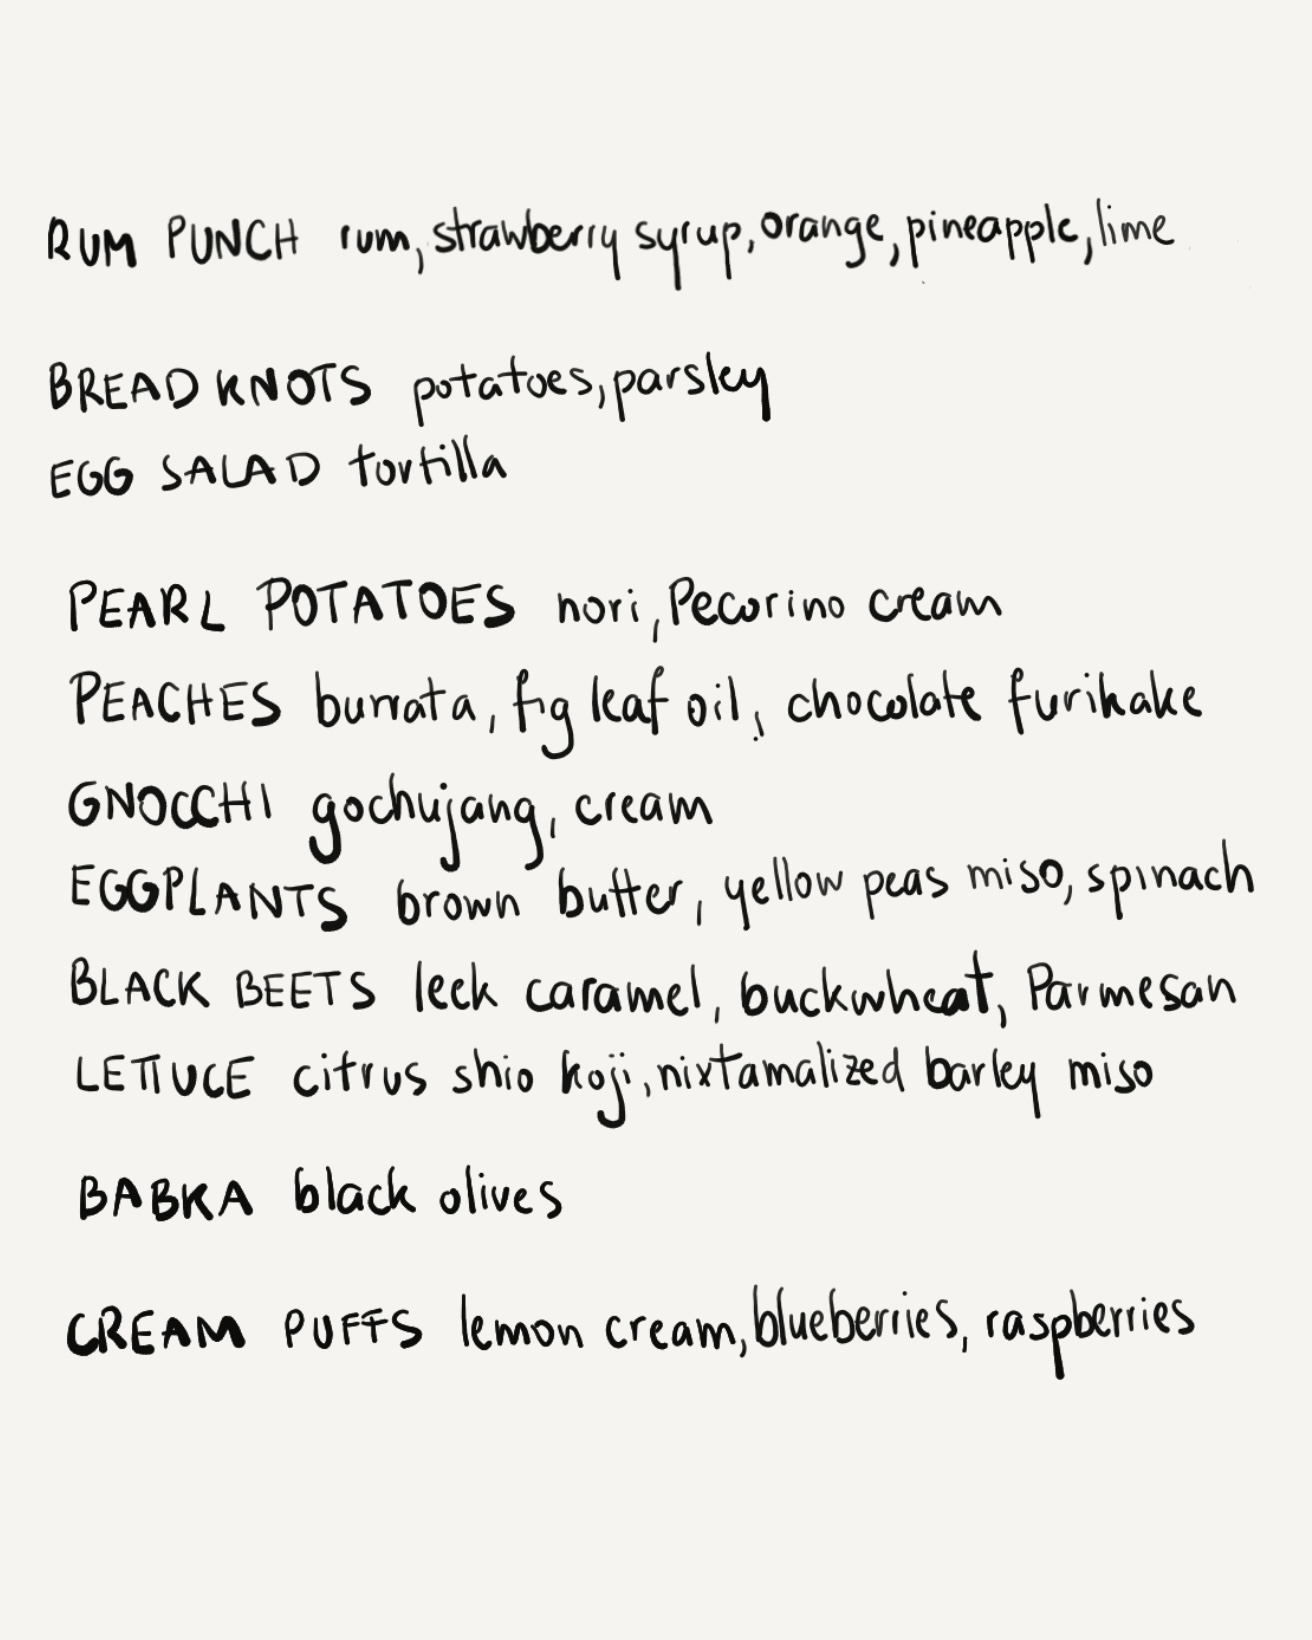 RUM PUNCH rum, strawberry syrup, orange, pineapple, lime
BREAD KNOTS potatoes, parsley
EGG SALAD tortilla
PEARL POTATOES nori, Pecorino cream
PEACHES burrata, fig leaf oil, chocolate furikake
GNOCCHI gochujang, cream
EGGPLANTS brown butter, yellow peas miso, spinach
BLACK BEETS leek caramel, buckwheat, Parmesan
LETTUCE citrus shio koji, nixtamalized barley miso
BABKA black olives
CREAM PUFFS lemon cream, blueberries, raspberries